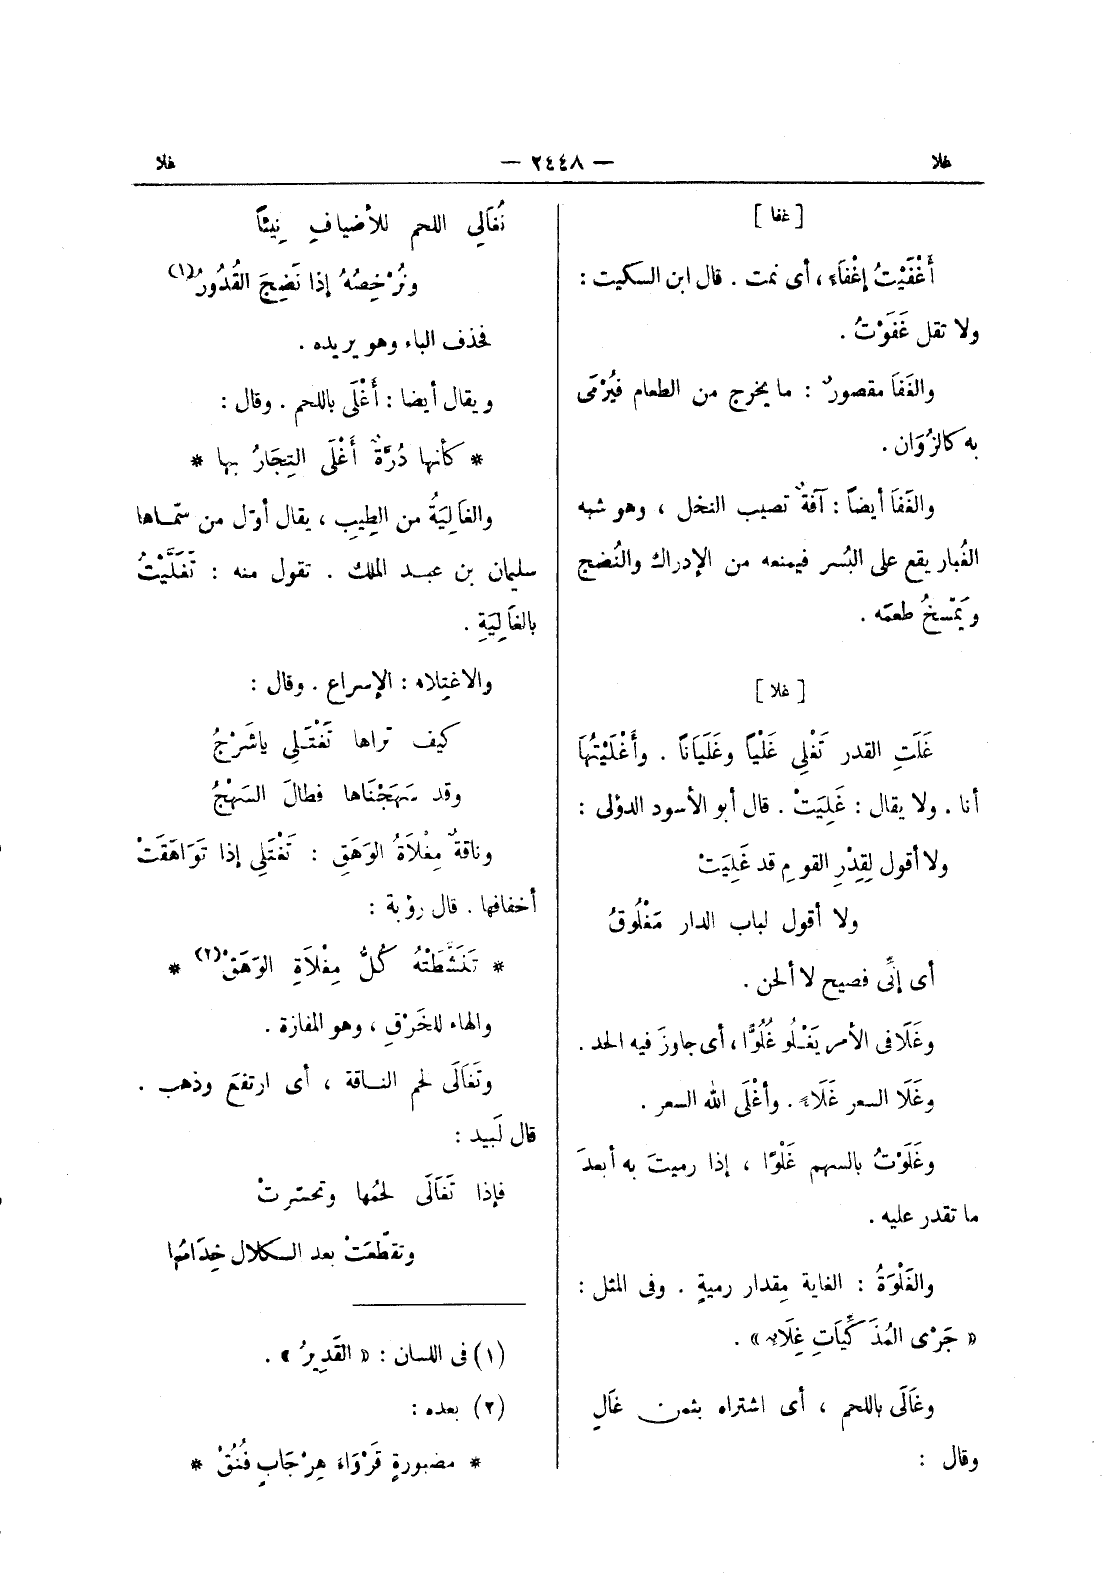 غلا
— ٢٤٤٨ —
غلا
[ غفا ]
أَغْفَيْتُ إغْفَاءً ، أى نمت . قال ابن السكيت :
ولا تقل غَفَوْتُ .
والغَفَا مقصورٌ : ما يخرج من الطعام فيُرْمَى
به كالزُوَان .
والغَفَا أيضاً : آفةٌ تصيب النخل ، وهو شبه
الغُبار يقع على البُسر فيمنعه من الإدراك والنُضج
ويَمْسَخُ طعمَه .
[ غلا ]
غَلَتِ القدر تَغْلِي غَلْياً وغَلَيَاناً . وأَغْلَيْتُهَا
أنا . ولا يقال : غَلِيَتْ . قال أبو الأسود الدؤلى :
ولا أقول لِقِدْرِ القومِ قد غَلِيَتْ
ولا أقول لباب الدار مَغْلُوقُ
أى إنِّى فصيح لا ألحن .
وغَلَا فى الأمر يَغْلُو غُلُوًّا ، أى جاوزَ فيه الحد .
وغَلَا السعر غَلَاءً . وأَغْلَى الله السعر .
وغَلَوْتُ بالسهم غَلْوًا ، إذا رميتَ به أبعدَ
ما تقدر عليه .
والغَلْوَةُ : الغاية مِقدار رميةٍ . وفى المثل :
« جَرْى المُذَكِّيَاتِ غِلَاءٌ » .
وغَالَى باللحم ، أى اشتراه بثمن غَالٍ
وقال :
نُغَالِي اللحم للأضيافِ نِيئاً
ونُرْخِصُهُ إذا نَضِجَ القُدُورُ(١)
فحذف الباء وهو يريده .
ويقال أيضا : أَغْلَى باللحم . وقال :
* كأنها دُرَّةٌ أَغْلَى التِجَارُ بها *
والغَالِيَةُ من الطِيبِ ، يقال أوّل من سمّاها
سليمان بن عبد الملك . تقول منه : تَغَلَّيْتُ
بالغَالِيَةِ .
والاغتِلاء : الإسراع . وقال :
كيف تراها تَغْتَلِي ياشَرْجُ
وقد سَهَجْنَاها فطالَ السَهْجُ
وناقةٌ مِغْلَاةُ الوَهَقِ : تَغْتَلِي إذا تَوَاهَقَتْ
أخفافها . قال رؤبة :
* تَنَشَّطَتْهُ كُلُّ مِغْلَاةِ الوَهَقْ(٢) *
والهاء للخَرْقِ ، وهو المفازة .
وتَغَالَى لحم الناقة ، أى ارتفع وذهب .
قال لَبيد :
فإذا تَغَالَى لحمُها وتحسّرتْ
وتقطّعَتْ بعد الكلال خِدَامُها
(١) فى اللسان : « القَدِيرُ » .
(٢) بعده :
* مضبورةٍ قَرْوَاءَ هِرْجَابٍ فُنُقْ *